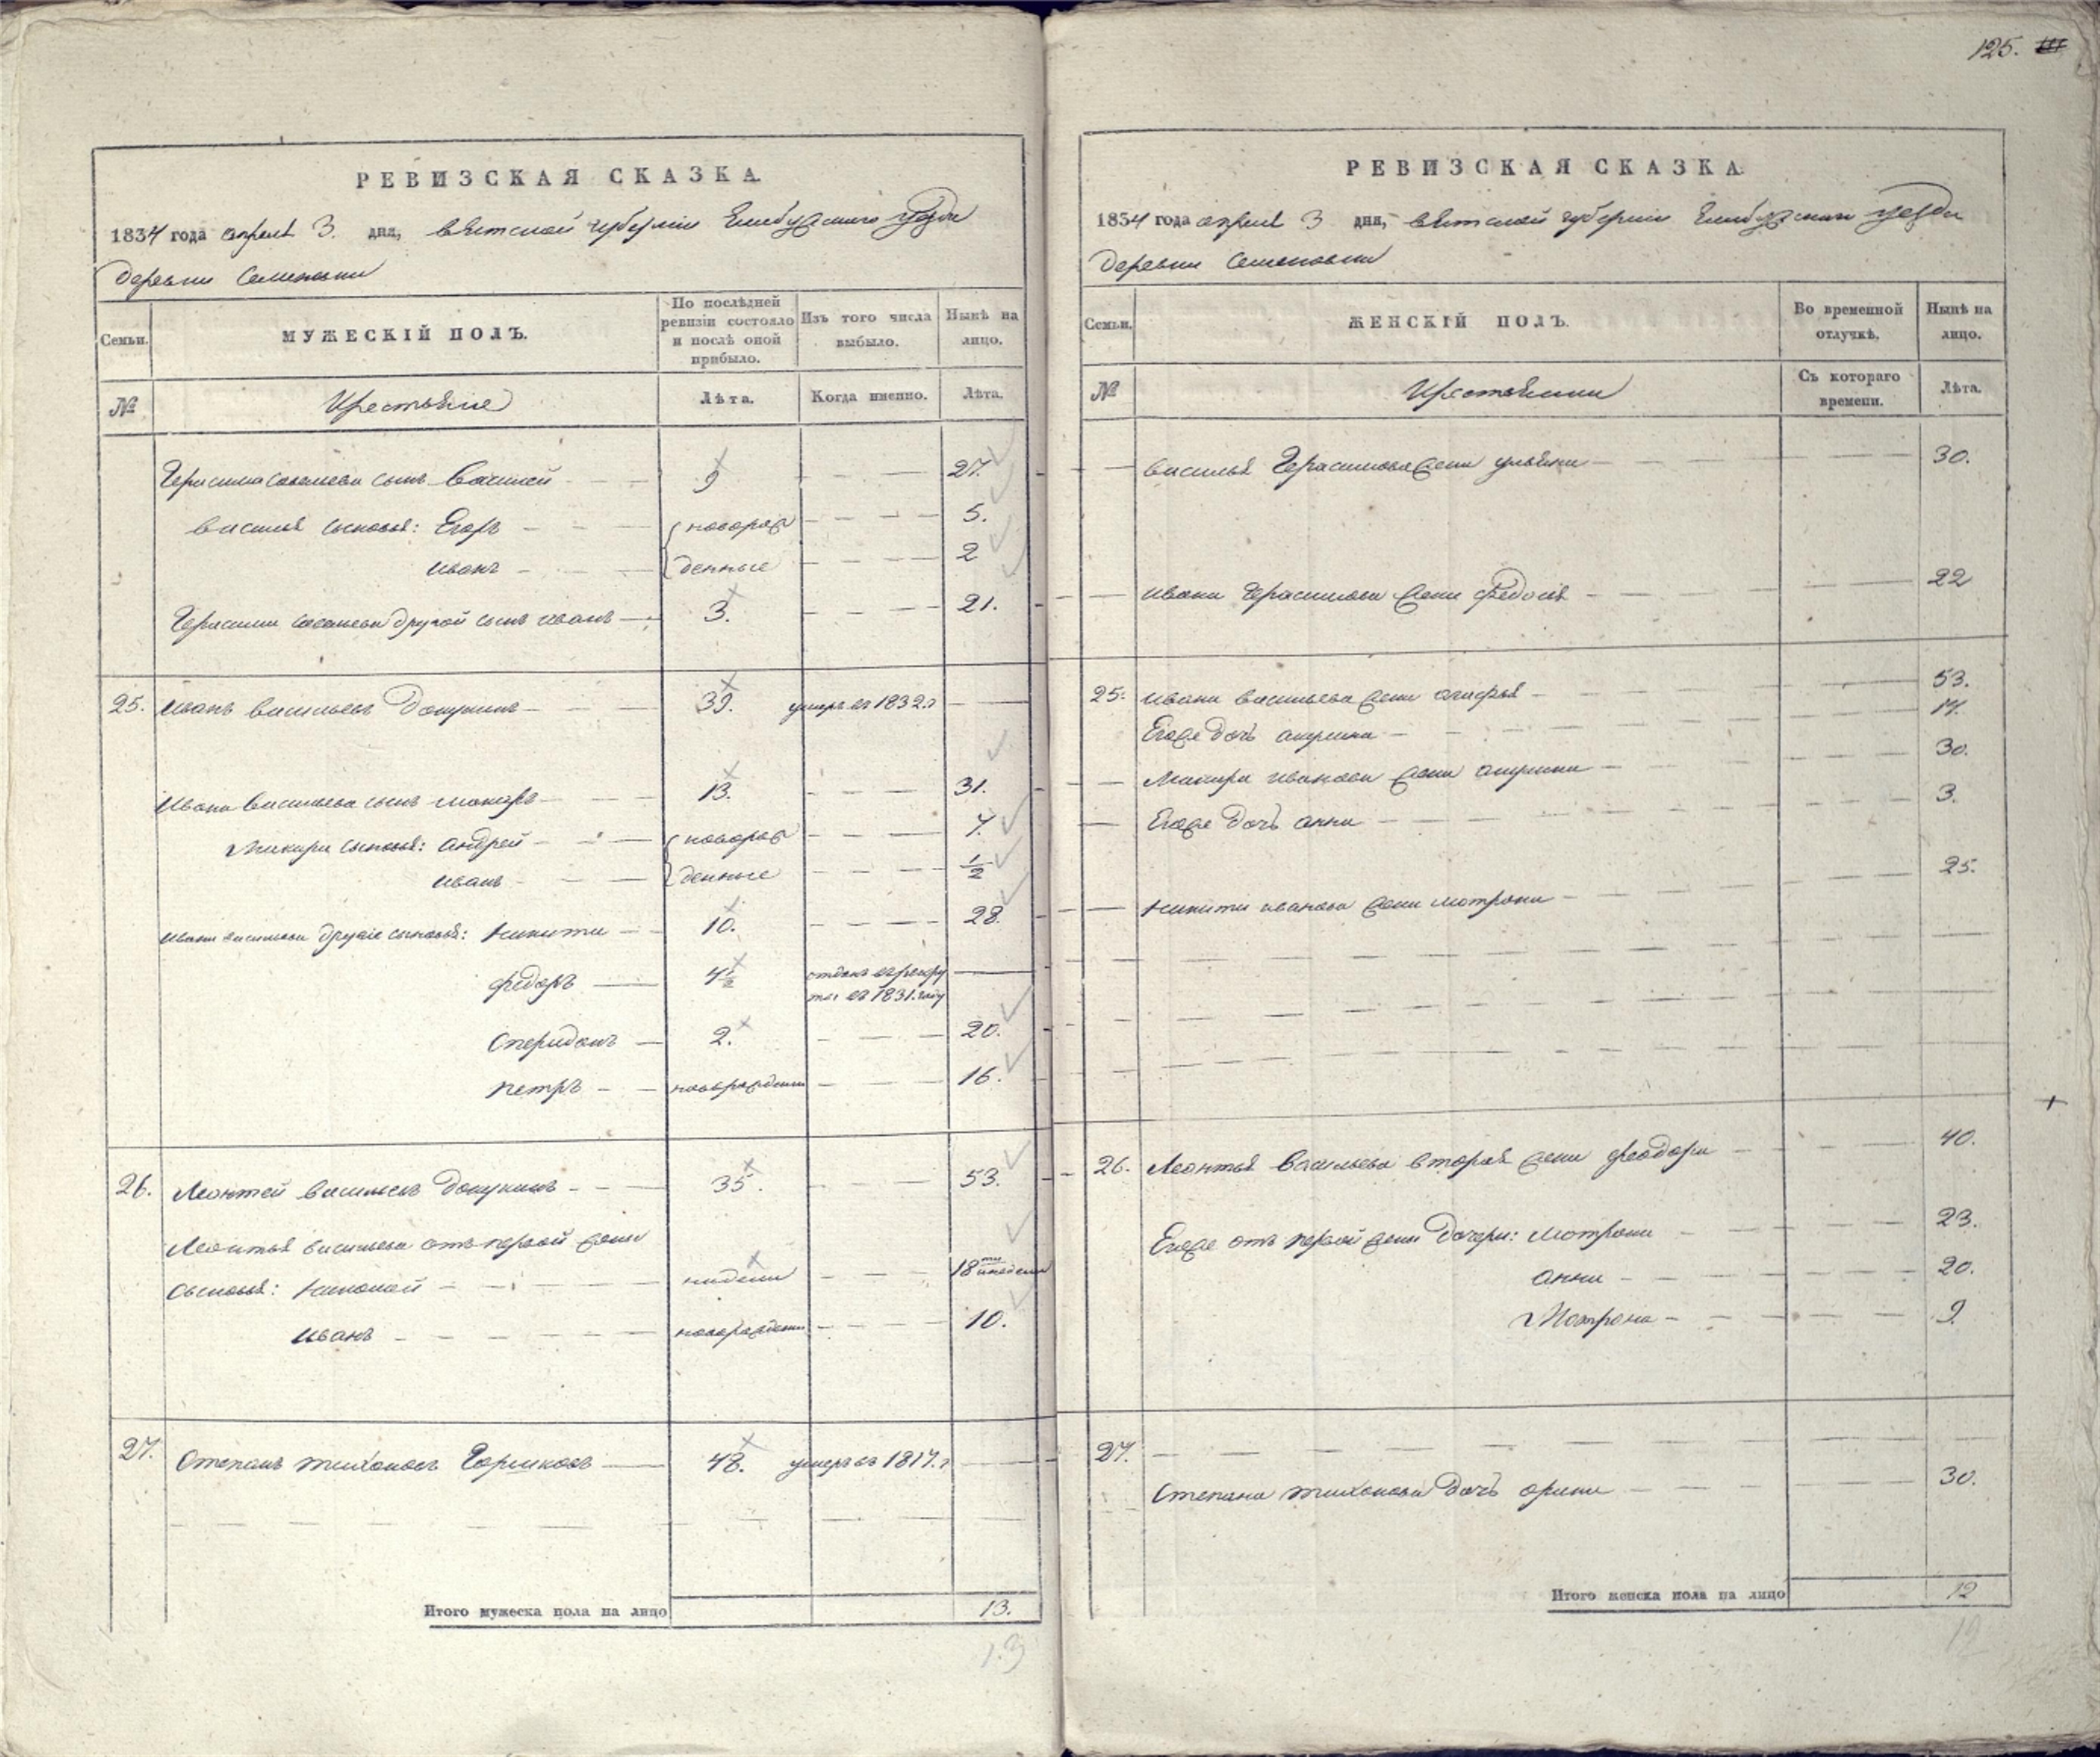 125.
РЕВИЗСКАЯ СКАЗКА.
1834 года апреля 3. дня, вятской губернии Елабужского уезда
деревни Семеновки
Семьи.
МУЖЕСКІЙ ПОЛЪ.
По послѣдней ревизіи состояло и послѣ оной прибыло.
Изъ того числа выбыло.
Нынѣ на лицо.
№
Крестьяне
Лѣта.
Когда именно.
Лѣта.
Герасима сынъ Василей 9 27.
василья сыновья: Егоръ новорож 5.
иванъ денные 2
Герасима другой сынъ иванъ 3. 21.
25. иванъ васильевъ 39. умеръ въ 1832.г
Ивана васильева сынъ макаръ 13. 31.
макара сыновья: андрей новорож 7.
иванъ денные 1/2
ивана васильева другие сыновья: никита 10. 28.
федоръ 4 1/2 отданъ в рекру
ты въ 1831. году
Спиридонъ 2. 20.
петръ новорожденны 16.
26. Леонтей васильевъ 35. 53.
Леонтья васильева отъ первой жены
сыновья: николай недели 18
иванъ новорожденны 10.
27. Степанъ тихоновъ Горшковъ 48. умеръ въ 1817.г
Итого мужеска пола на лицо 13.
13
РЕВИЗСКАЯ СКАЗКА.
1834 года апреля 3 дня, вятской губернии Елабужскаго уезда
деревни Семеновки
Семьи.
ЖЕНСКІЙ ПОЛЪ.
Во временной отлучкѣ.
Нынѣ на лицо.
№
Крестьянки
Съ котораго времени.
Лѣта.
василья Герасимова жена ульяна 30.
ивана Герасимова жена 22
25. ивана васильева жена 53.
Егоже дочь акулина 17.
Макара иванова жена акулина 30.
Егоже дочь анна 3.
никиты иванова жена матрона 25.
26. Леонтья васильева вторая жена феодора 40.
Егоже отъ первой жены дочери: матрона 23.
анна 20.
Матрона 9.
27.
Степана тихонова дочь орина 30.
Итого женска пола на лицо 12
12